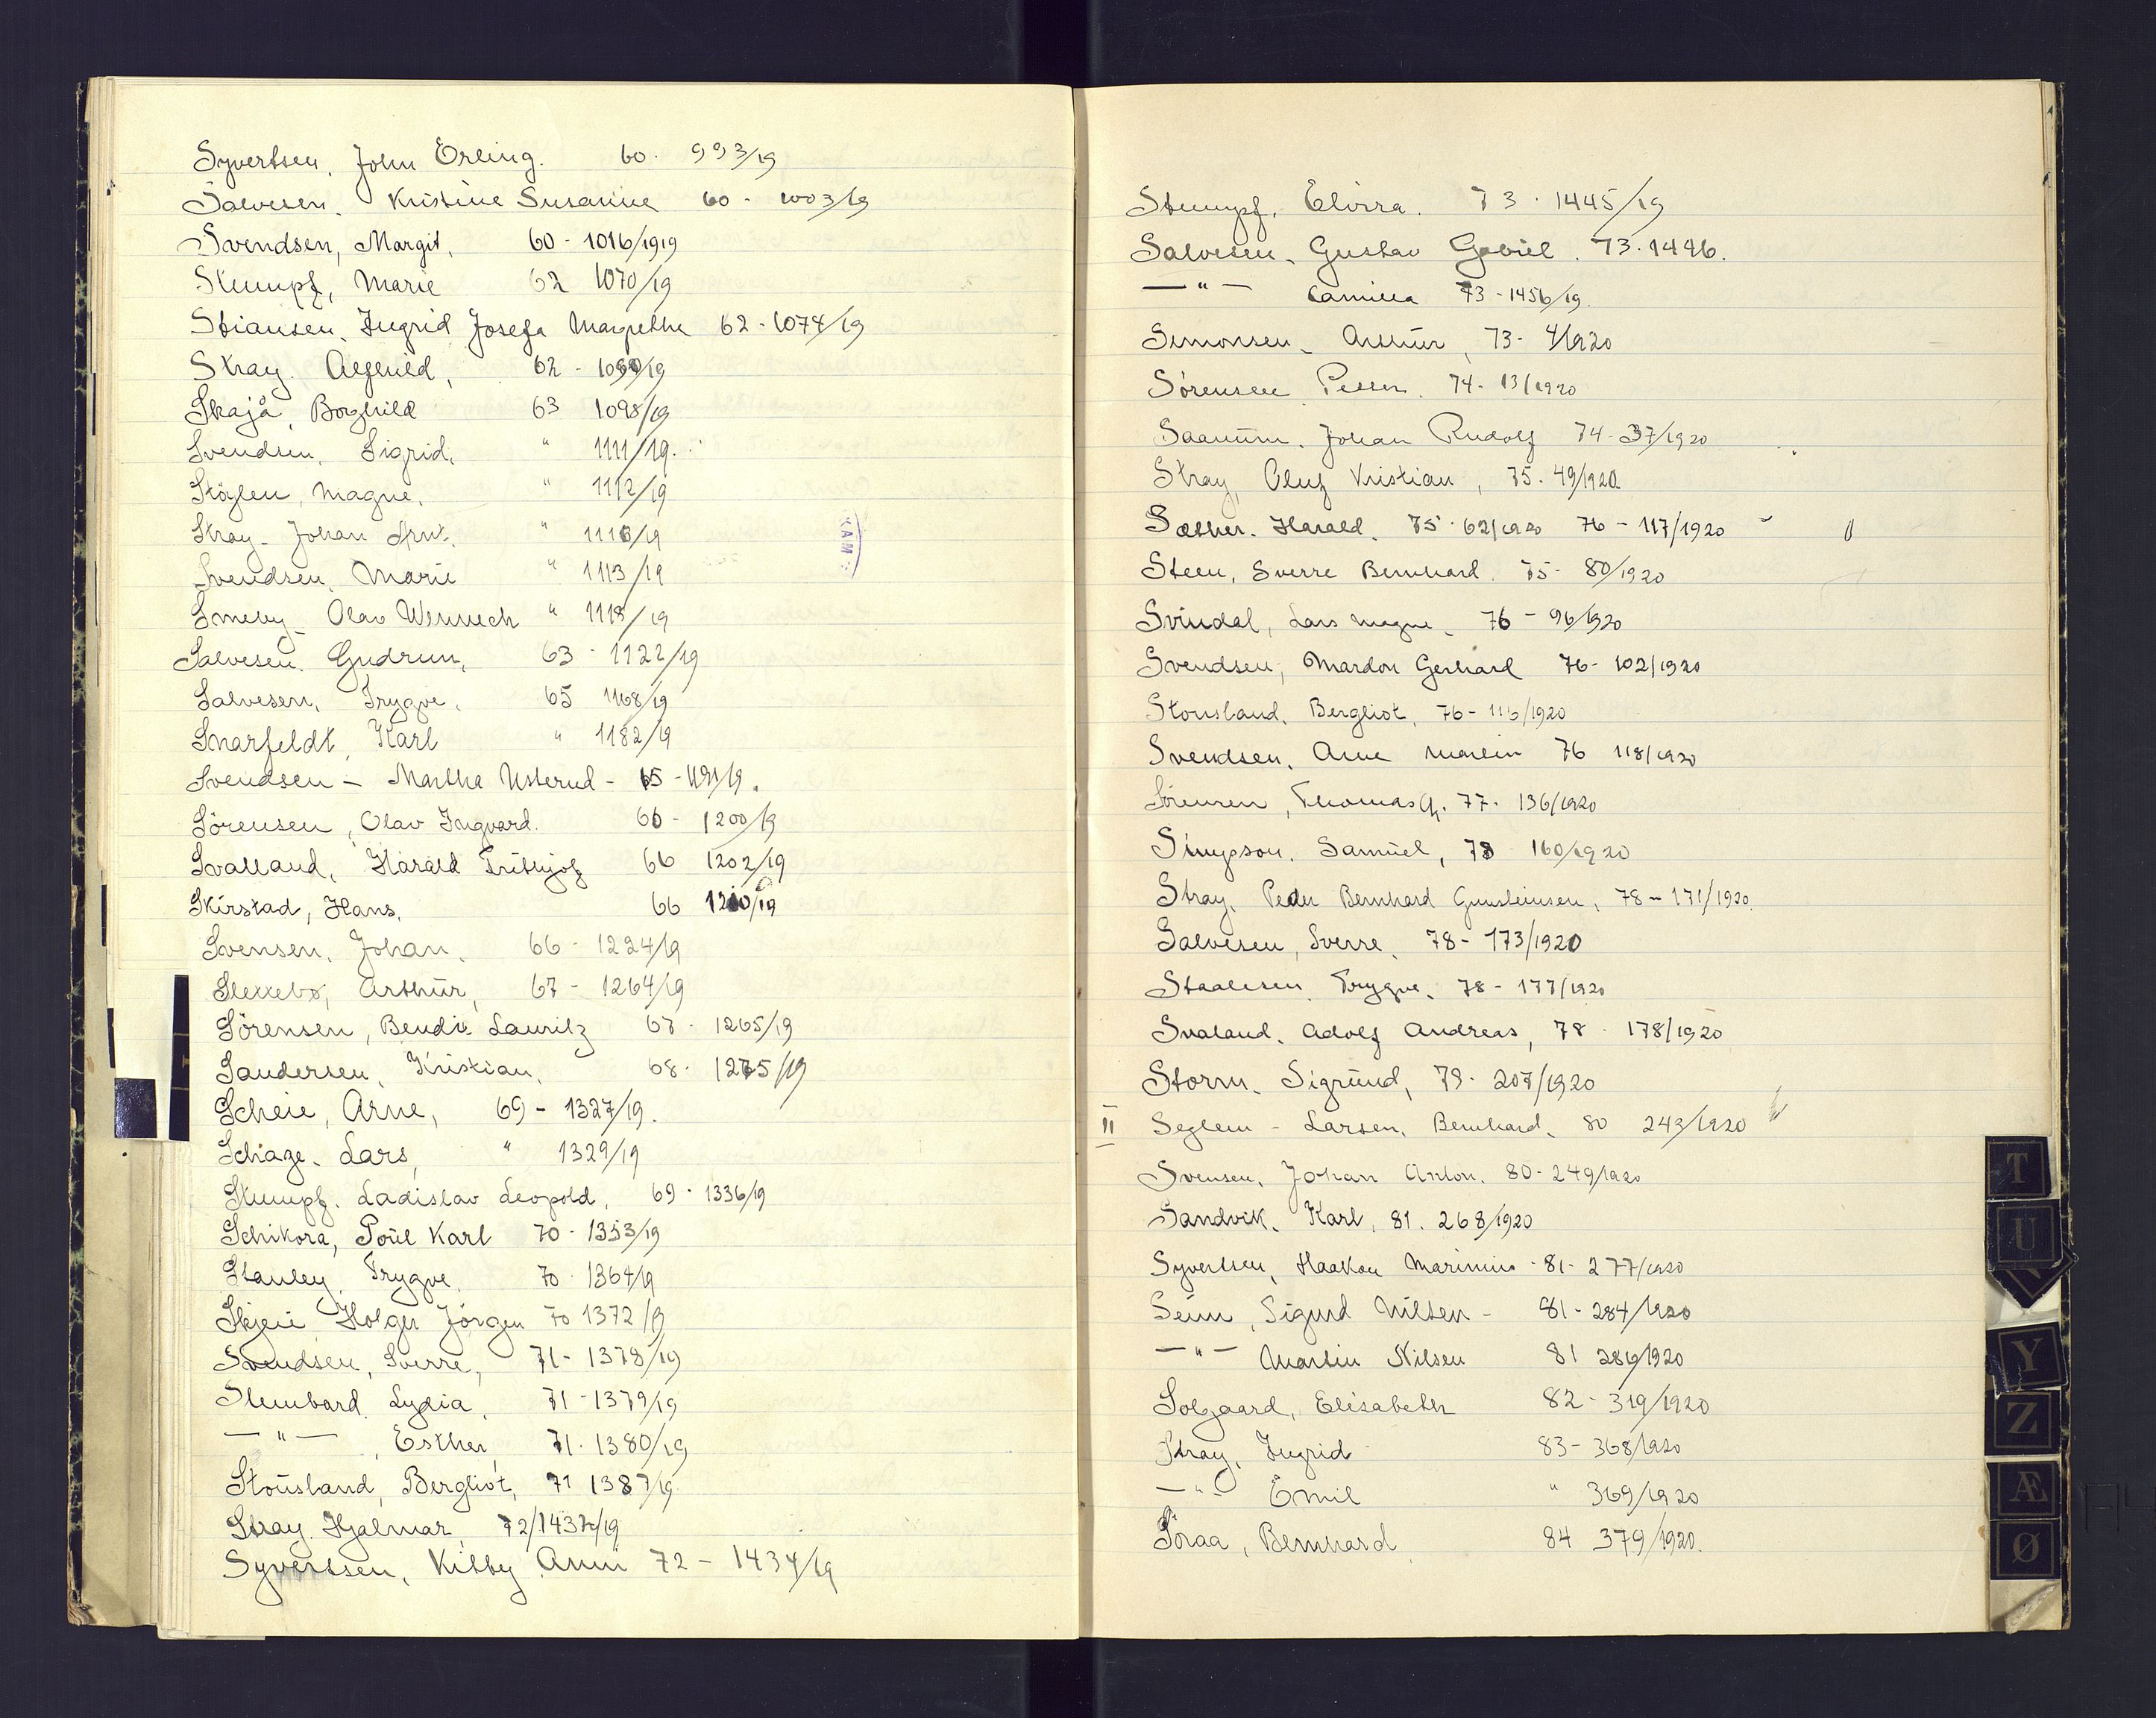 Syvertsen, John Erling. 60. 993/19
Salvesen, Kristine Susanne 60 - 1003/19
Svendsen, Margit, 60 - 1016/1919
Stumpf, Marie 62 1070/19
Stiansen, Ingrid Josefa Margethe 62 - 1074/19
Stray. Alfhild, 62 - 1089/19
Skajå, Borghild 63 1098/19
Svendsen, Sigrid, " 1111/19.
Stöylen, Magne, " 1112/19
Stray - Johan Arnt. " 1116/19
Svendsen, Marie " 1113/19
Smeby - Olav Wennech " 1118/19
Salvesen. Gudrun, 63 - 1122/19
Salvesen, Trygve, 65 1168/19
Snarfeldt, Karl " 1182/19
Svendsen - Martha Usterud - 65 - 1191/19.
Sörensen, Olav Ingvard. 66 - 1200/19
Svalland, Harald Frithjof 66 1202/19
Skirstad, Hans, 66 1210/19
Svensen, Johan, 66 - 1224/19
Slettebø, Arthur, 67 - 1264/19
Sörensen, Bendix Lauritz 67 - 1265/19
Sandersen, Kristian, 68 - 1275/19
Scheie, Arne, 69 - 1327/19.
Schiage. Lars, " 1329/19
Stumpf. Ladislav Leopold, 69 - 1336/19
Schikora, Poul Karl 70 - 1353/19
Stanley, Trygve 70 - 1364/19
Skjeie Holger Jörgen 70 1372/19
Svendsen, Sverre, 71 - 1378/19
Stembard. Lydia, 71 - 1379/19
— " — , Esther, 71. 1380/19
Stousland, Bergliot, 71 1387/19
Stray. Hjalmar, 72/1432/19
Syvertsen, Kitty Anni 72 - 1434/19
Stumpf, Elvira. 73 - 1445/19
Salvesen, Gustav Gabriel. 73. 1446.
— " — Camilla 73 - 1456/19.
Simonsen, Arthur, 73 - 4/1920
Sörensen Petter. 74 - 13/1920
Saanum. Johan Rudolf 74 - 37/1920
Stray, Oluf Kristian, 75. 49/1920
Sæther. Harald. 75 - 62/1920 76 - 117/1920
Steen, Sverre Bernhard. 75 - 80/1920
Svindal, Lars Magne. 76 - 96/1920
Svendsen, Mardon Gerhard 76 - 102/1920
Stousland, Bergliot, 76 - 116/1920
Svendsen, Arne Martin 76 118/1920
Sörensen, Thomas G. 77 - 136/1920
Simpson. Samuel, 78 160/1920
Stray, Peder Bernhard Gunsteinsen, 78 - 171/1920.
Salvesen, Sverre, 78 - 173/1920
Staalesen, Trygve, 78 - 177/1920
Svaland, Adolf Andreas, 78 - 178/1920
Storm, Sigrund, 79 - 207/1920
II Seglem - Larsen, Bernhard, 80 243/1920
Svensen, Johan Anton. 80 - 249/1920
Sandvik, Karl, 81. 268/1920
Syvertsen, Haakon Marinius - 81 - 277/1920
Seim, Sigurd Nilsen - 81 - 284/1920
— " — Martin Nilsen 81 286/1920
Solgaard, Elisabeth 82 - 319/1920
Stray, Ingrid 83 - 368/1920
— " — Emil " 369/1920
Straa, Bernhard 84 379/1920.
T
U
Y
Z
Æ
Ø